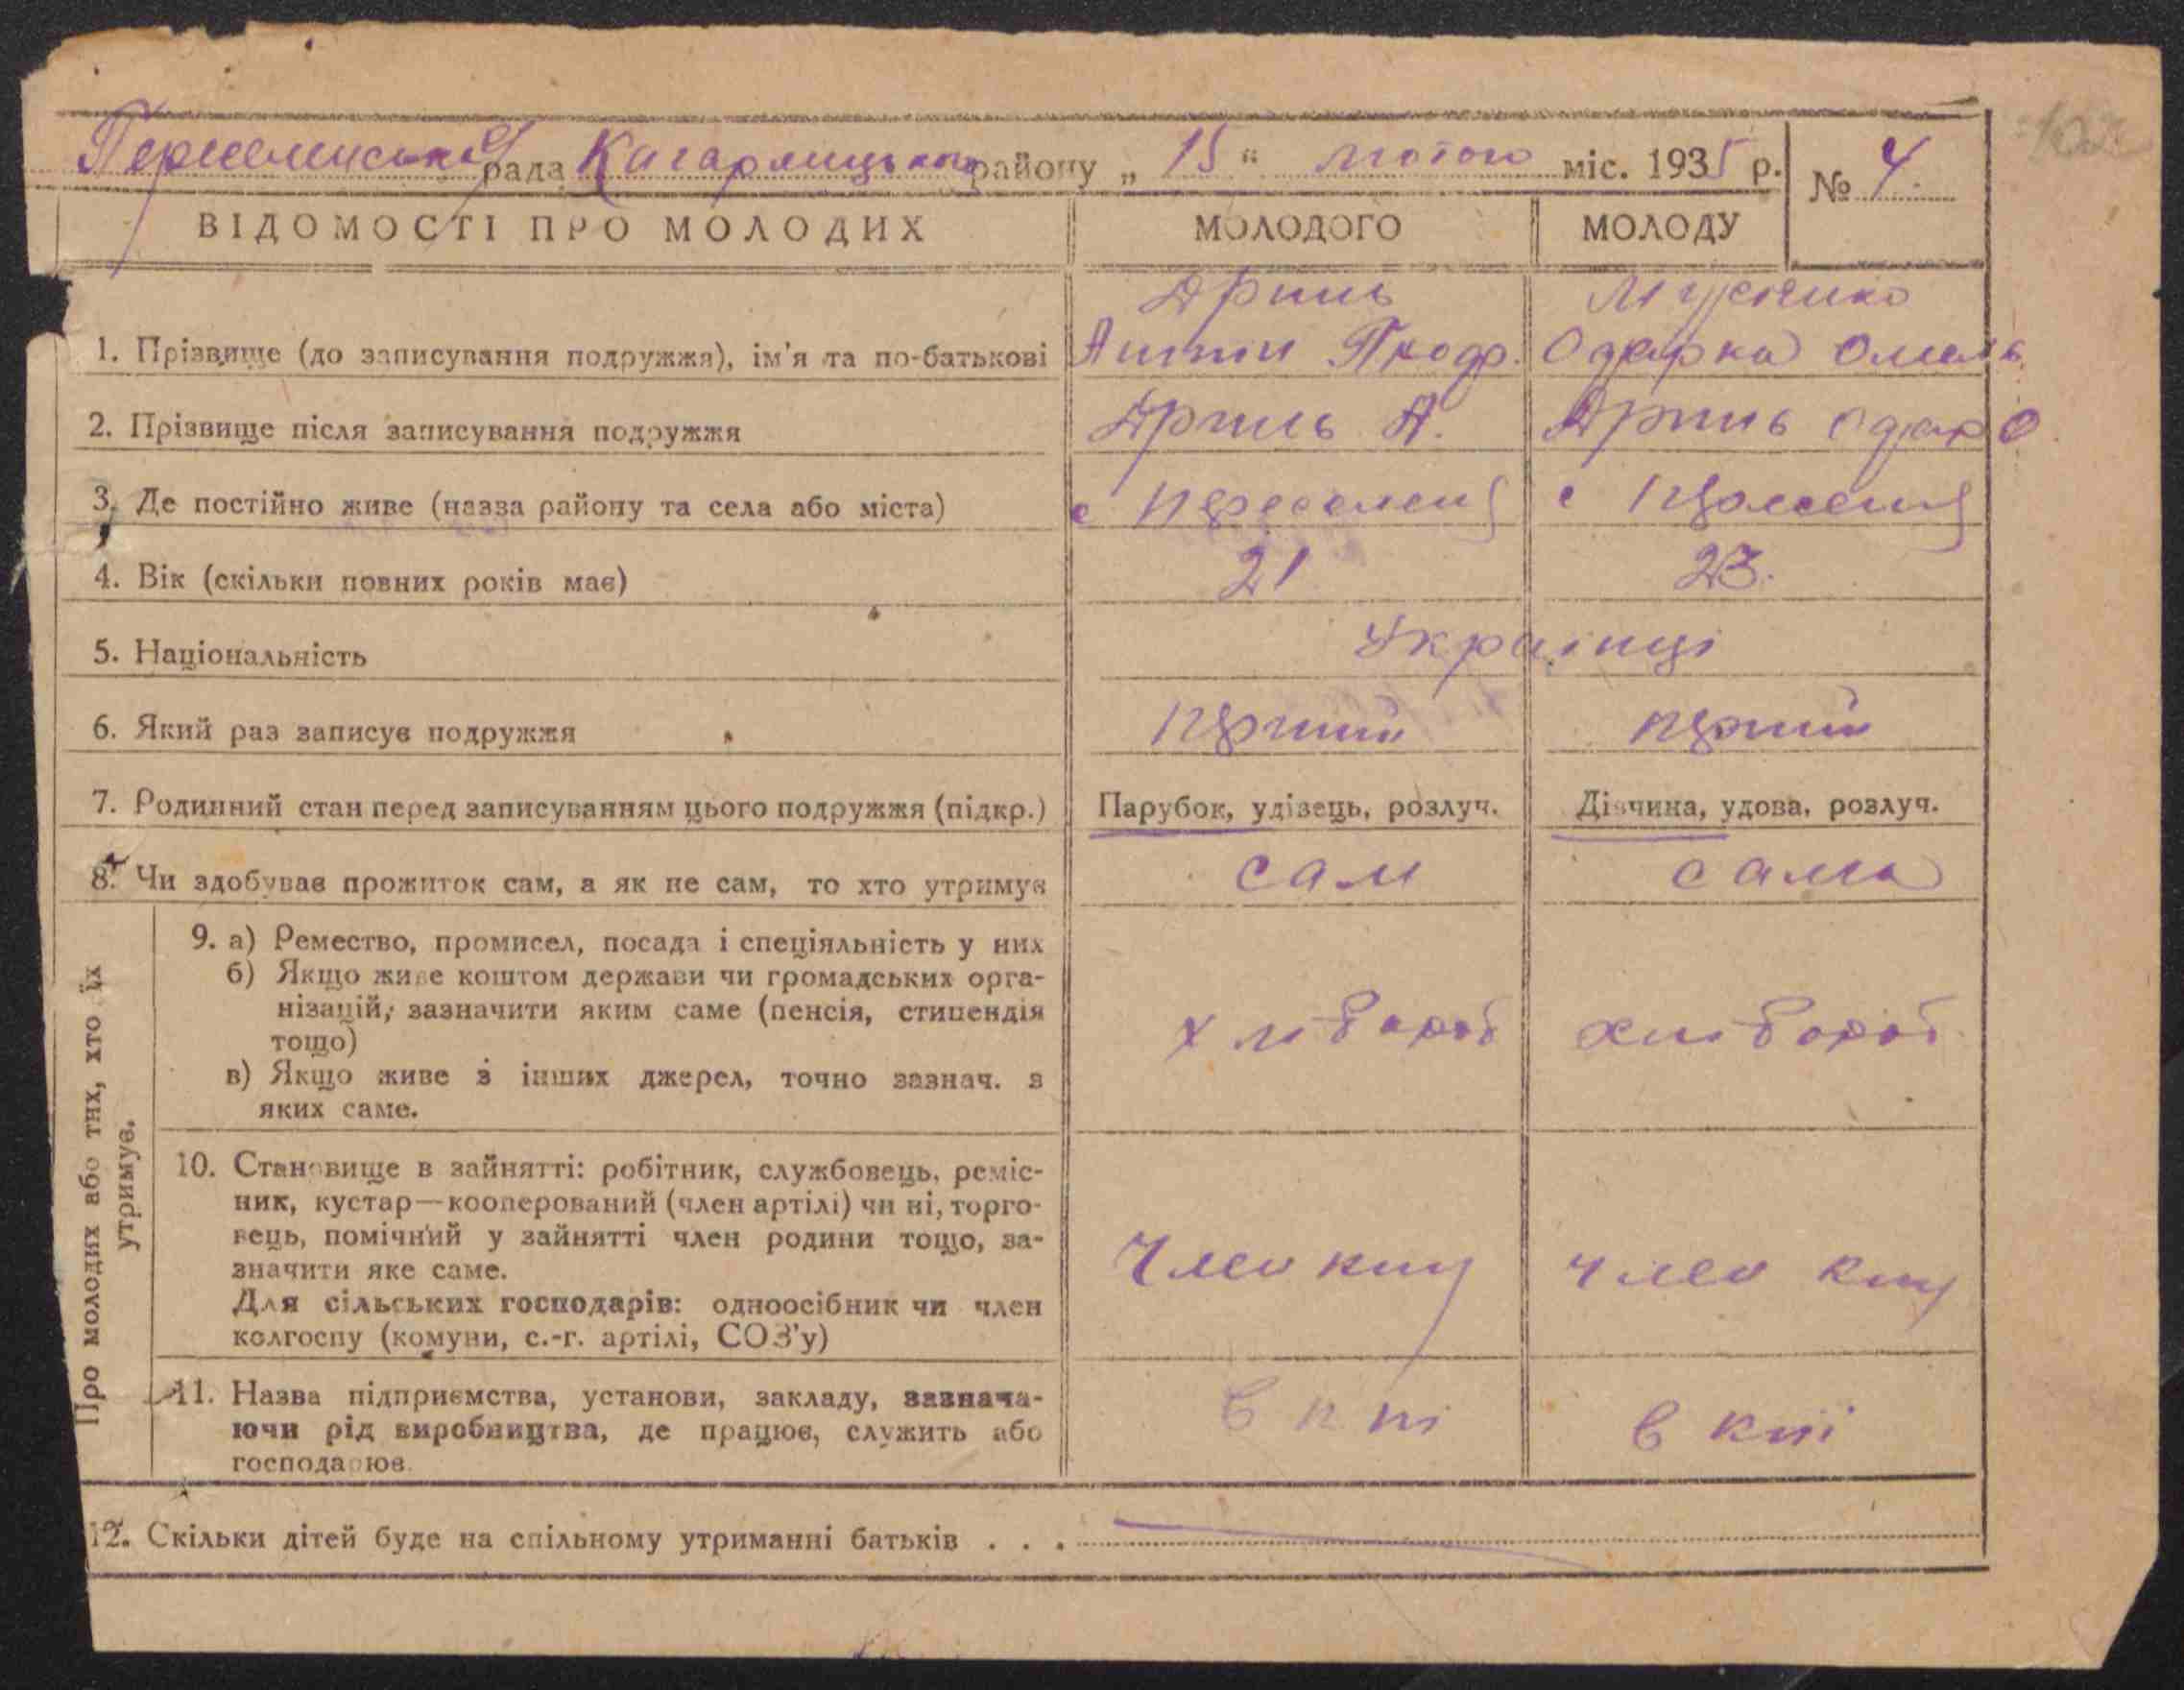 Переселенська рада Кагарлицького району „ 15 “ лютого міс. 1935 р. № 4.
ВІДОМОСТІ ПРО МОЛОДИХ МОЛОДОГО МОЛОДУ
1. Прізвище (до записування подружжя), ім'я та по-батькові
Антін Одарка
2. Прізвище після записування подружжя А. Одар
3. Де постійно живе (назва району та села або міста) с Переселен с
4. Вік (скільки повних років має) 21 23.
5. Національність Українці
6. Який раз записує подружжя перший перший
7. Родинний стан перед записуванням цього подружжя (підкр.) Парубок, удівець, розлуч. Дівчина, удова, розлуч.
8. Чи здобував прожиток сам, а як не сам, то хто утримує сам сама
Про молодих або тих, хто їх
утримує.
9. а) Ремество, промисел, посада і спеціяльність у них
б) Якщо живе коштом держави чи громадських орга-
нізацій, зазначити яким саме (пенсія, стипендія
тощо)
хлібороб хлібороб
в) Якщо живе з інших джерел, точно зазнач. з
яких саме.
10. Становище в зайнятті: робітник, службовець, реміс-
ник, кустар—кооперований (член артілі) чи ні, торго-
вець, помічний у зайнятті член родини тощо, за-
значити яке саме.
член член
Для сільських господарів: одноосібник чи член
колгоспу (комуни, с.-г. артілі, СОЗ'у)
11. Назва підприємства, установи, закладу, зазнача-
ючи рід виробництва, де працює, служить або
господарює.
в в
12. Скільки дітей буде на спільному утриманні батьків . . .